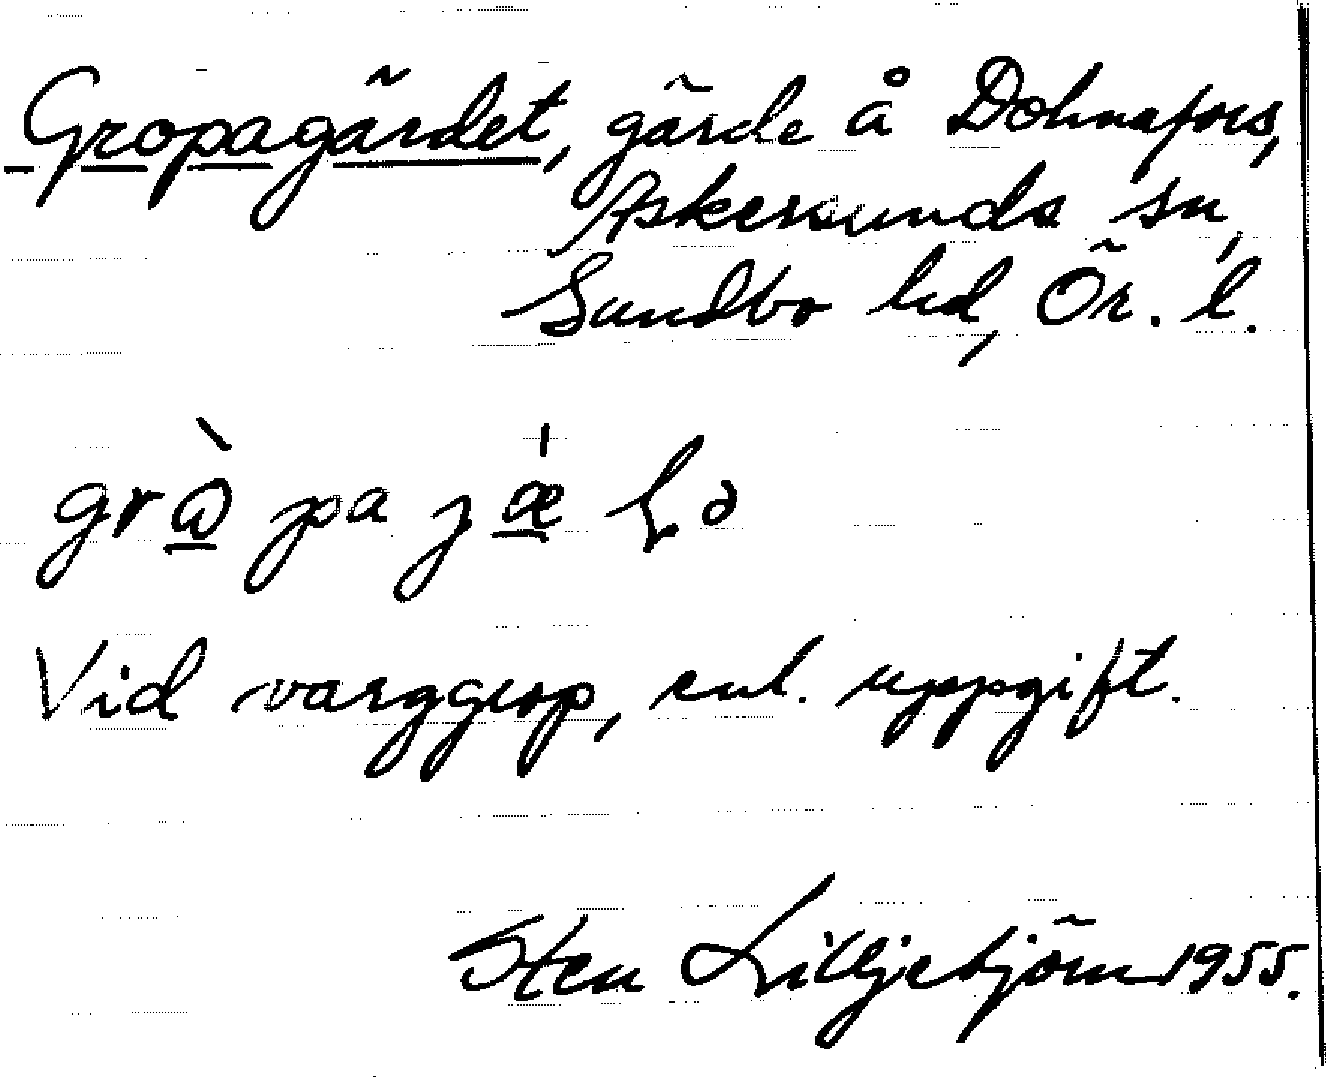 Gropagärdet, gärde å Dohnafors,
Askersunds sn,
Sundbo hd, Ör. l.
Vid varggrop, enl. uppgift.
Sten Lilljebjörn 1955.